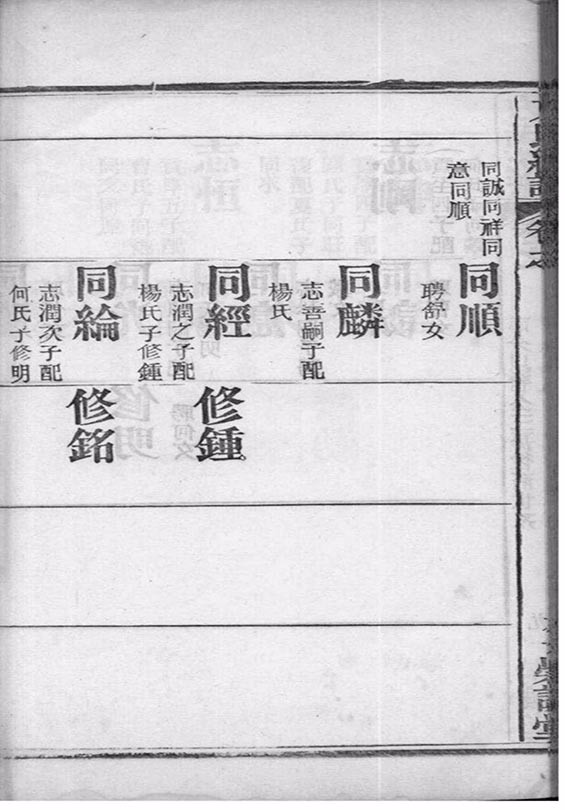 同誠同祥同
意同順
同順
聘舒女
同麟
志善嗣子配
楊氏
同經
志潤之子配
楊氏子修鍾
同綸
志潤次子配
何氏子修明
修鍾
修銘